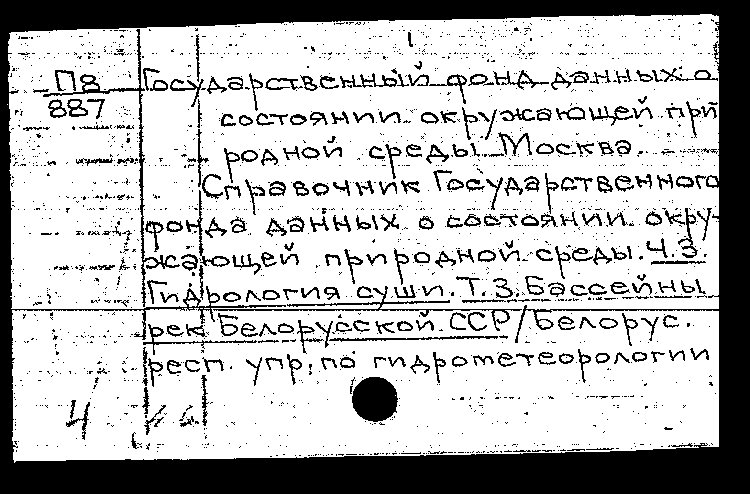 П8
887
Государственный фонд данных о
состоянии окружающей при
родной среды. Москва.
Справочник Государственного
фонда данных о состоянии окру-
жающей природной среды. Ч.3.
Гидрология суши. Т.3. Бассейны
рек Белорусской ССР/Белорус.
респ. упр. по гидрометеорологии
4